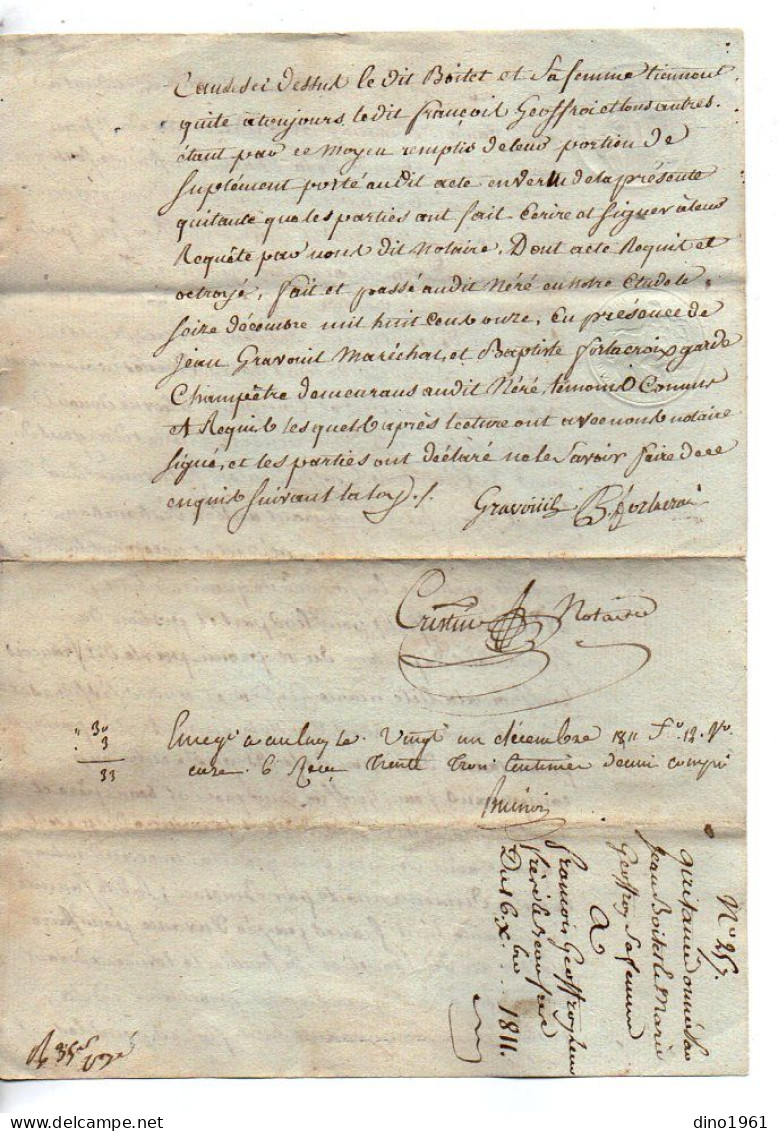 dessus le dit Boitet et Sa femme tiennent
quite atoujours ledit françois Geoffroi et tous autres.
étant par ce Moyen remplis de leur portion de
Suplément porté audit acte en vertu de la présente
quitance que les parties ont fait Ecrire et Signer à leur
Requête par nous dit Notaire. Dont acte Requis et
octroyé, fait et passé audit Néré en notre Etude le
Seize décembre mil huit Cens onze, En présence de
Jean Gravouil Maréchal, et Baptiste forlacroix garde
Champêtre demeurans audit Néré, témoins Connus
et Requis lesquels après lecture ont avec nous notaire
Signé, et les parties ont déclaré ne le Savoir faire de ce
enquis Suivant la loy ./.
Gravouil B. forlacroi
Notaire
30
3
33
à aulnay le Vingt un décembre 1811 fo. 12. Vo.
case. 6 Reçu trente trois Centimes compris
No. 257.
quitance donnée par
Jean Boitet et Marie
Geoffroy Sa femme
A
francois Geoffroy leur
frère et Beau frère
Du 16 Xbre 1811.
dino1961